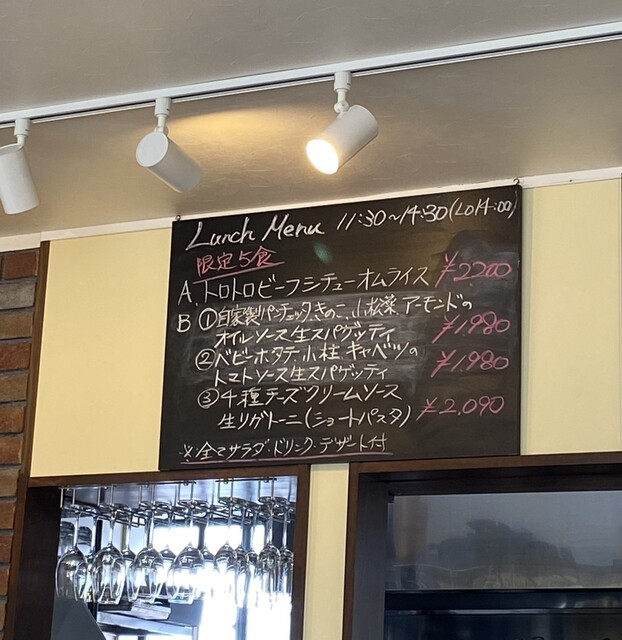 Lunch Menu 11:30~14:30(LO14:00)
限定5食
A、トロトロビーフシチューオムライス ¥2,200
B ①自家製パンチェッタ、きのこ、小松菜、アーモンドの
オイルソース生スパゲッティ ¥1,980
②ベビーホタテ、小柱、キャベツの
トマトソース生スパゲッティ ¥1,980
③4種チーズクリームソース
生リガトーニ(ショートパスタ) ¥2,090
※全てサラダ・ドリンク・デザート付